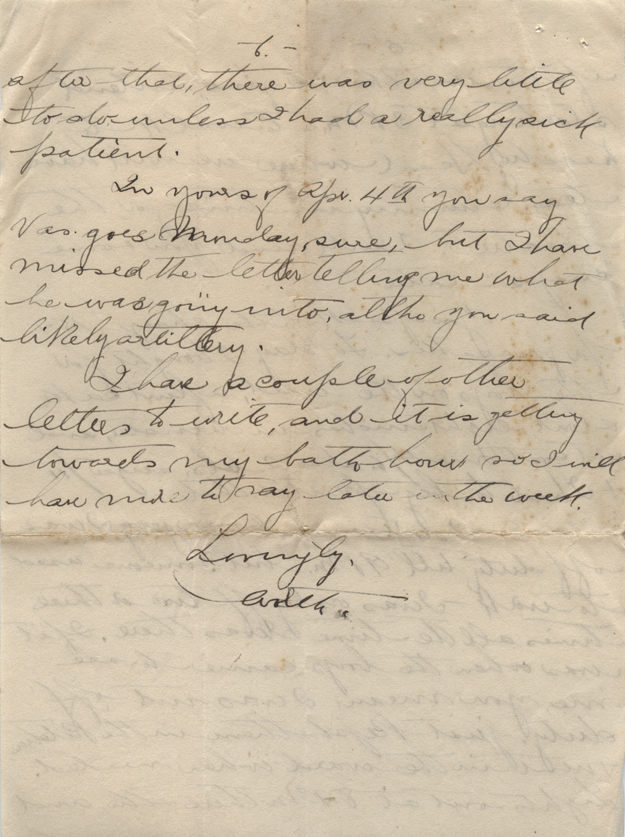 -6.-
after that, there was very little
to do unless I had a really sick
patient.
In yours of Apr. 4th you say
Vas. goes Monday, sure, but I have
missed the letter telling me what
he was going into, altho you said
likely artillery.
I have a couple of other
letters to write, and it is getting
towards my bath hour so I will
have more to say later in the week.
Lovingly,